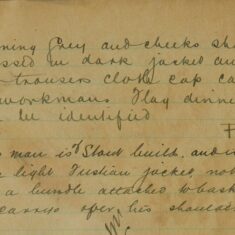 ning Grey and cheeks sh
ssed in dark jacket an
trousers cloth cap ca
workmans Flag dinne
be identified
F
man is Stout built, and
light Fustian jacket, not
a bundle attached to bask
carrys over his shoulde